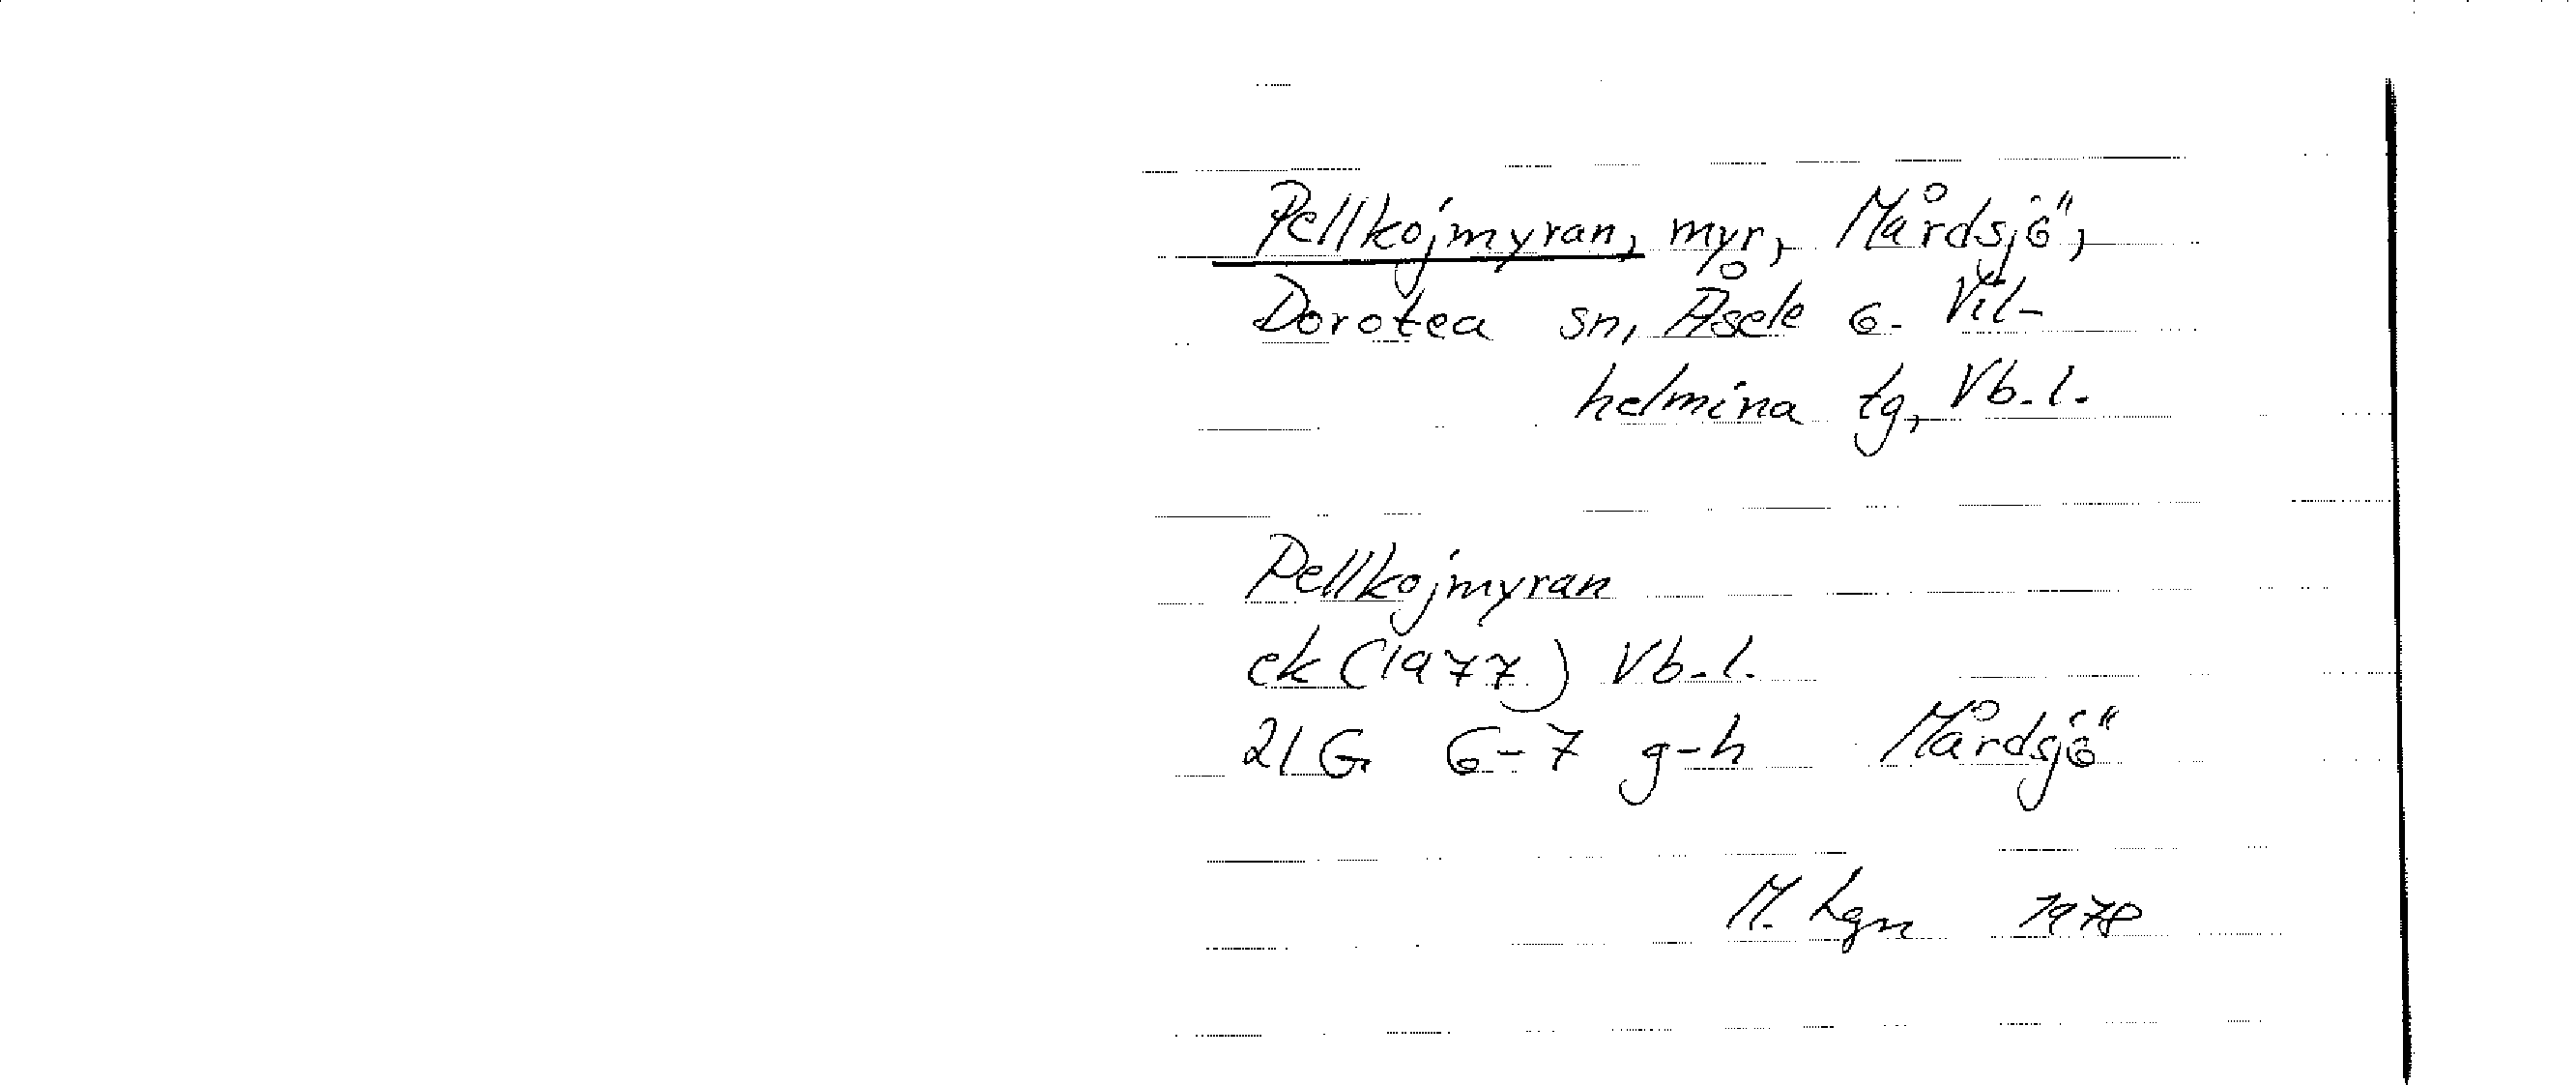 Pellkojmyran, myr, Mårdsjö,
Dorotea sn, Åsele o. Vil-
helmina tg, Vb.l.
Pellkojmyran
ek (1977) Vb.l.
21G 6-7 g-h Mårdsjö
M. Lgn 1978